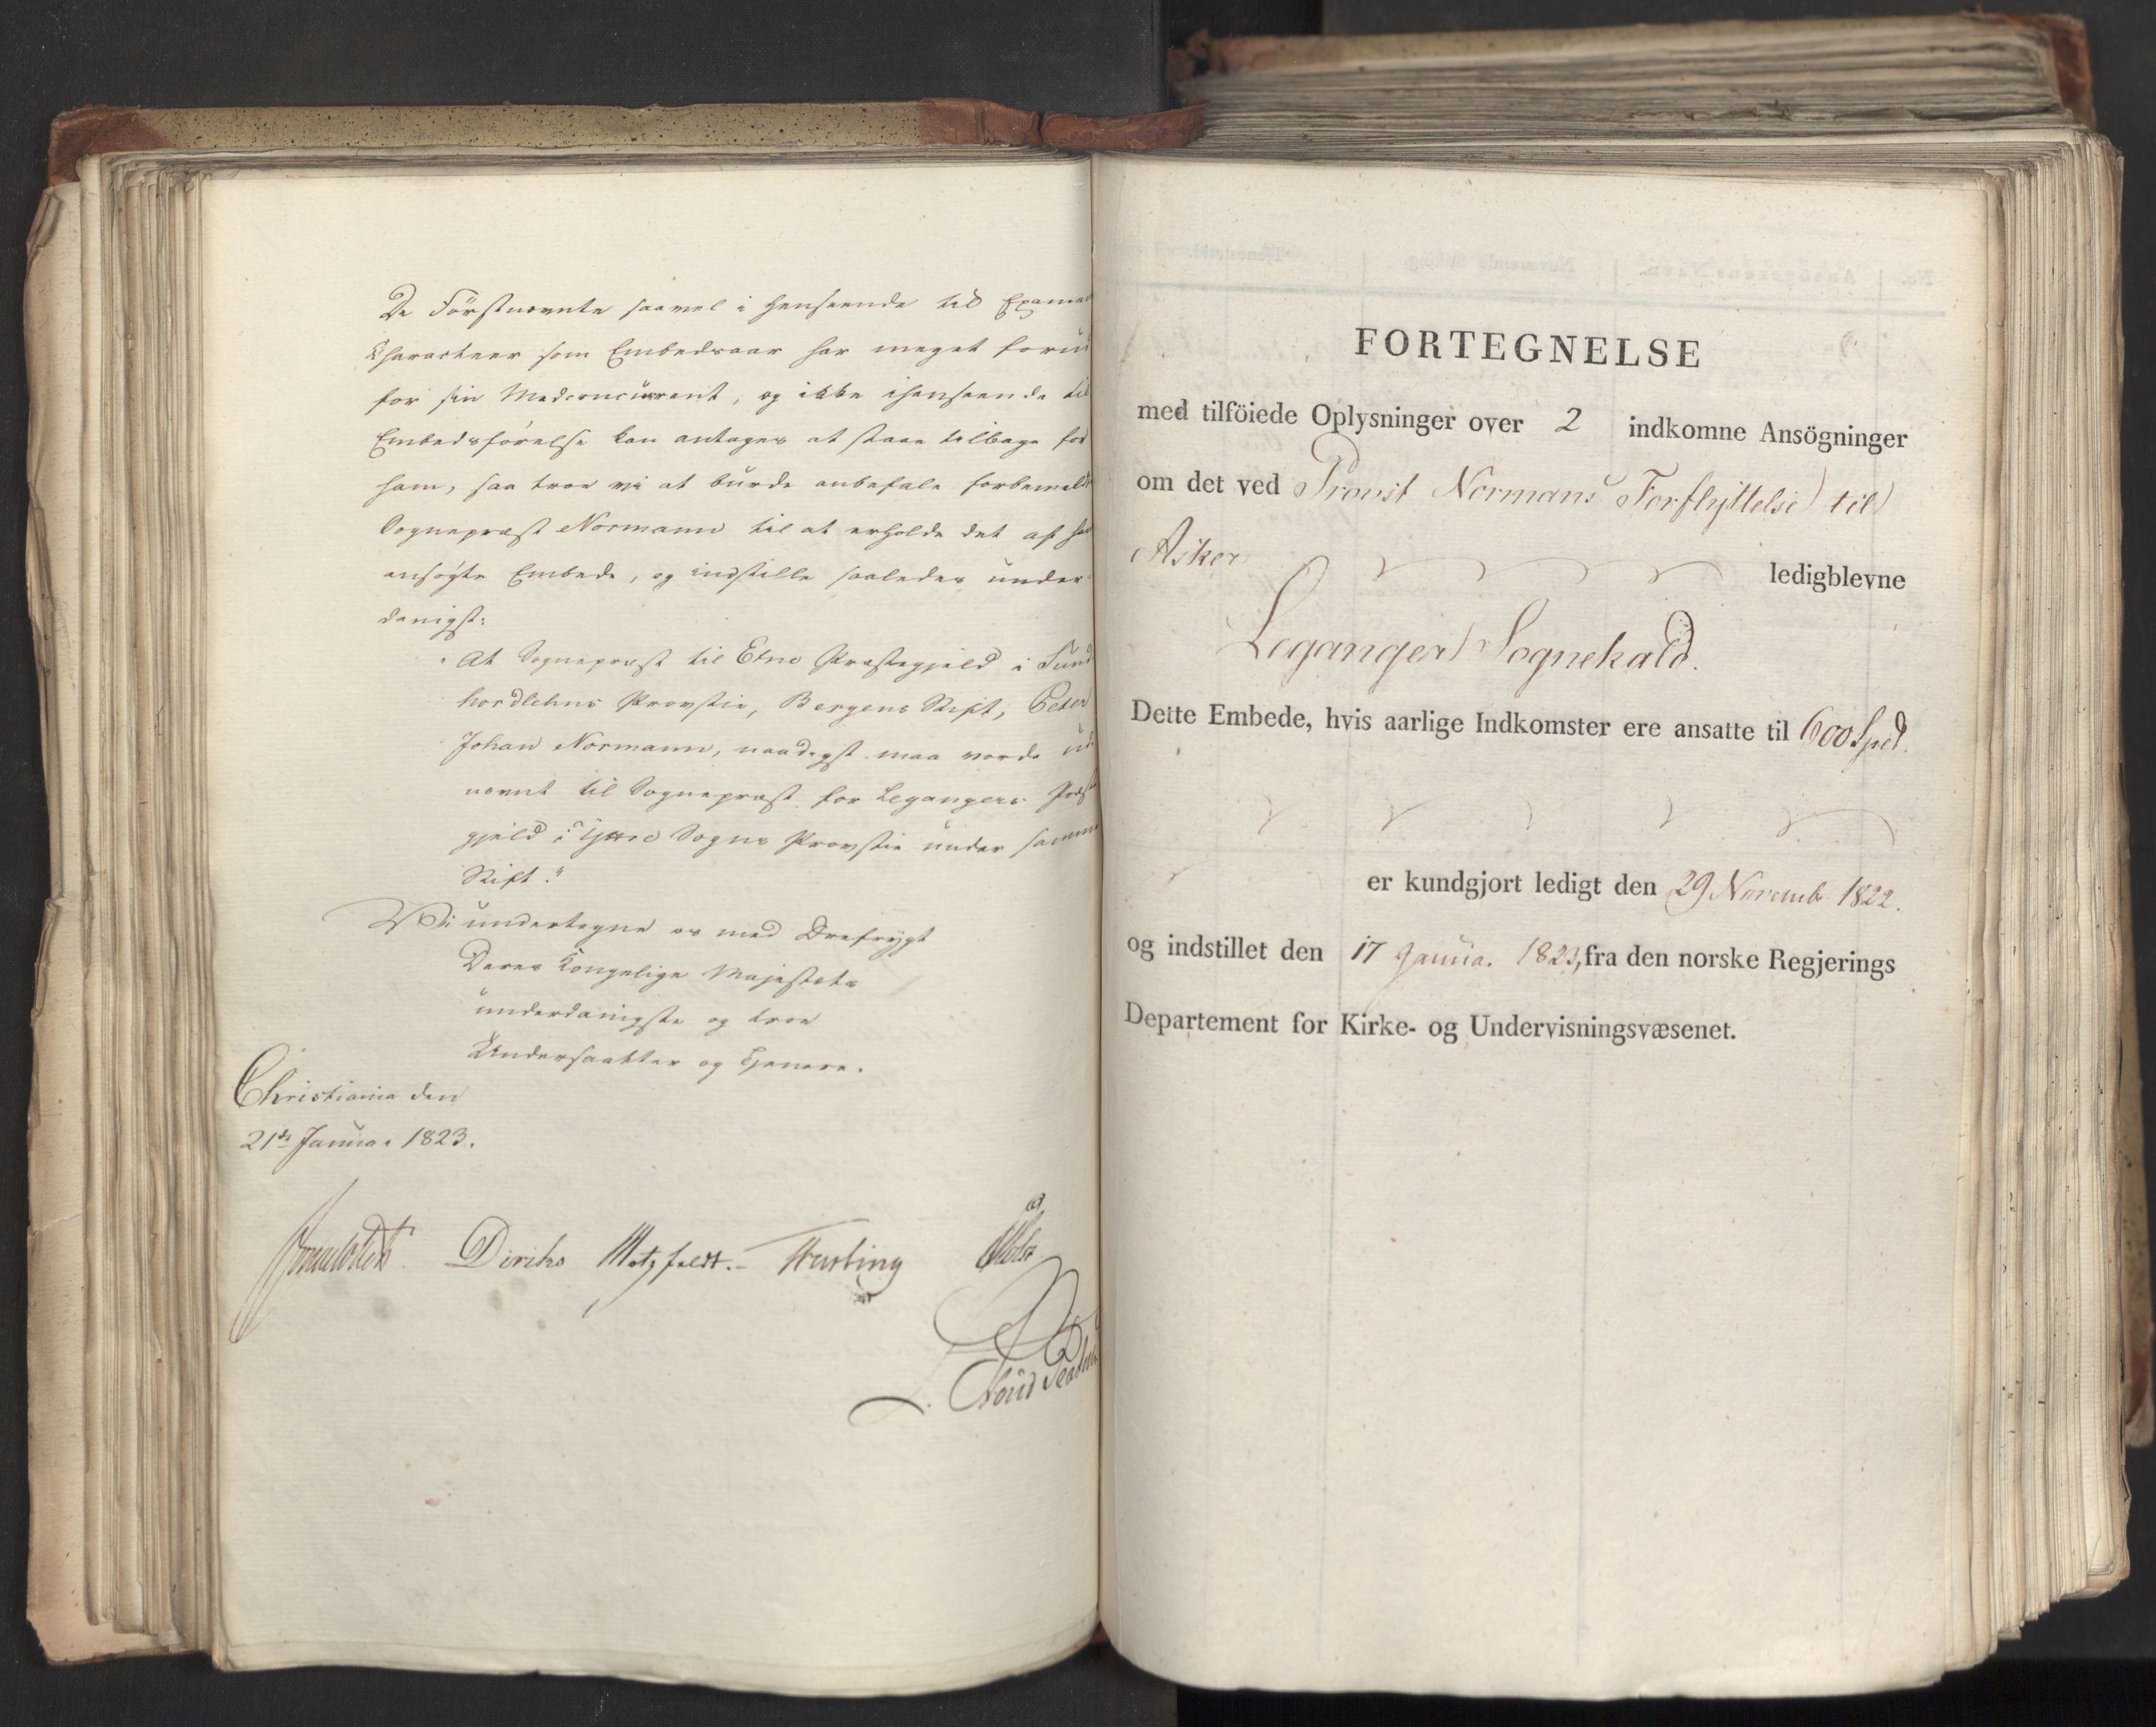 De Förstnævnte saavel i Henseende til Examens
Characteer som Embedsaar har meget forud
for sin Medconcurrent, og ikke i Henseende til
Embedsförelse kan antages at staae tilbage for
ham, saa troe vi at burde anbefale forbemeldte
Sognepræst Normann til at erholde det af ham
ansögte Embede, og indstille saaledes under-
danigst:
"At Sognepræst til Etne Præstegjeld i Sund-
hordlehns Provstie, Bergens Stift, Peter
Johan Normann, naadigst maa vorde ud-
nævnt til Sognepræst for Legangers Præste-
gjeld i Yttre Sogns Provstie under samme
Stift."
Vi undertegne os med Ærefrygt
Deres Kongelige Majestæts
underdanigste og troe
Undersaatter og Tjenere.
Christiania den
21de Januar 1823.
Diriks Motzfeldt. Holst
FORTEGNELSE
med tilföiede Oplysninger over 2 indkomne Ansögninger
om det ved Provst Normans Forflyttelse til
Asker ledigblevne
Leganger Sognekald.
Dette Embede, hvis aarlige Indkomster ere ansatte til 600 Spd.
er kundgjort ledigt den 29 Novembr 1822.
og indstillet den 17 Januar 1823, fra den norske Regjerings
Departement for Kirke- og Undervisningsvæsenet.